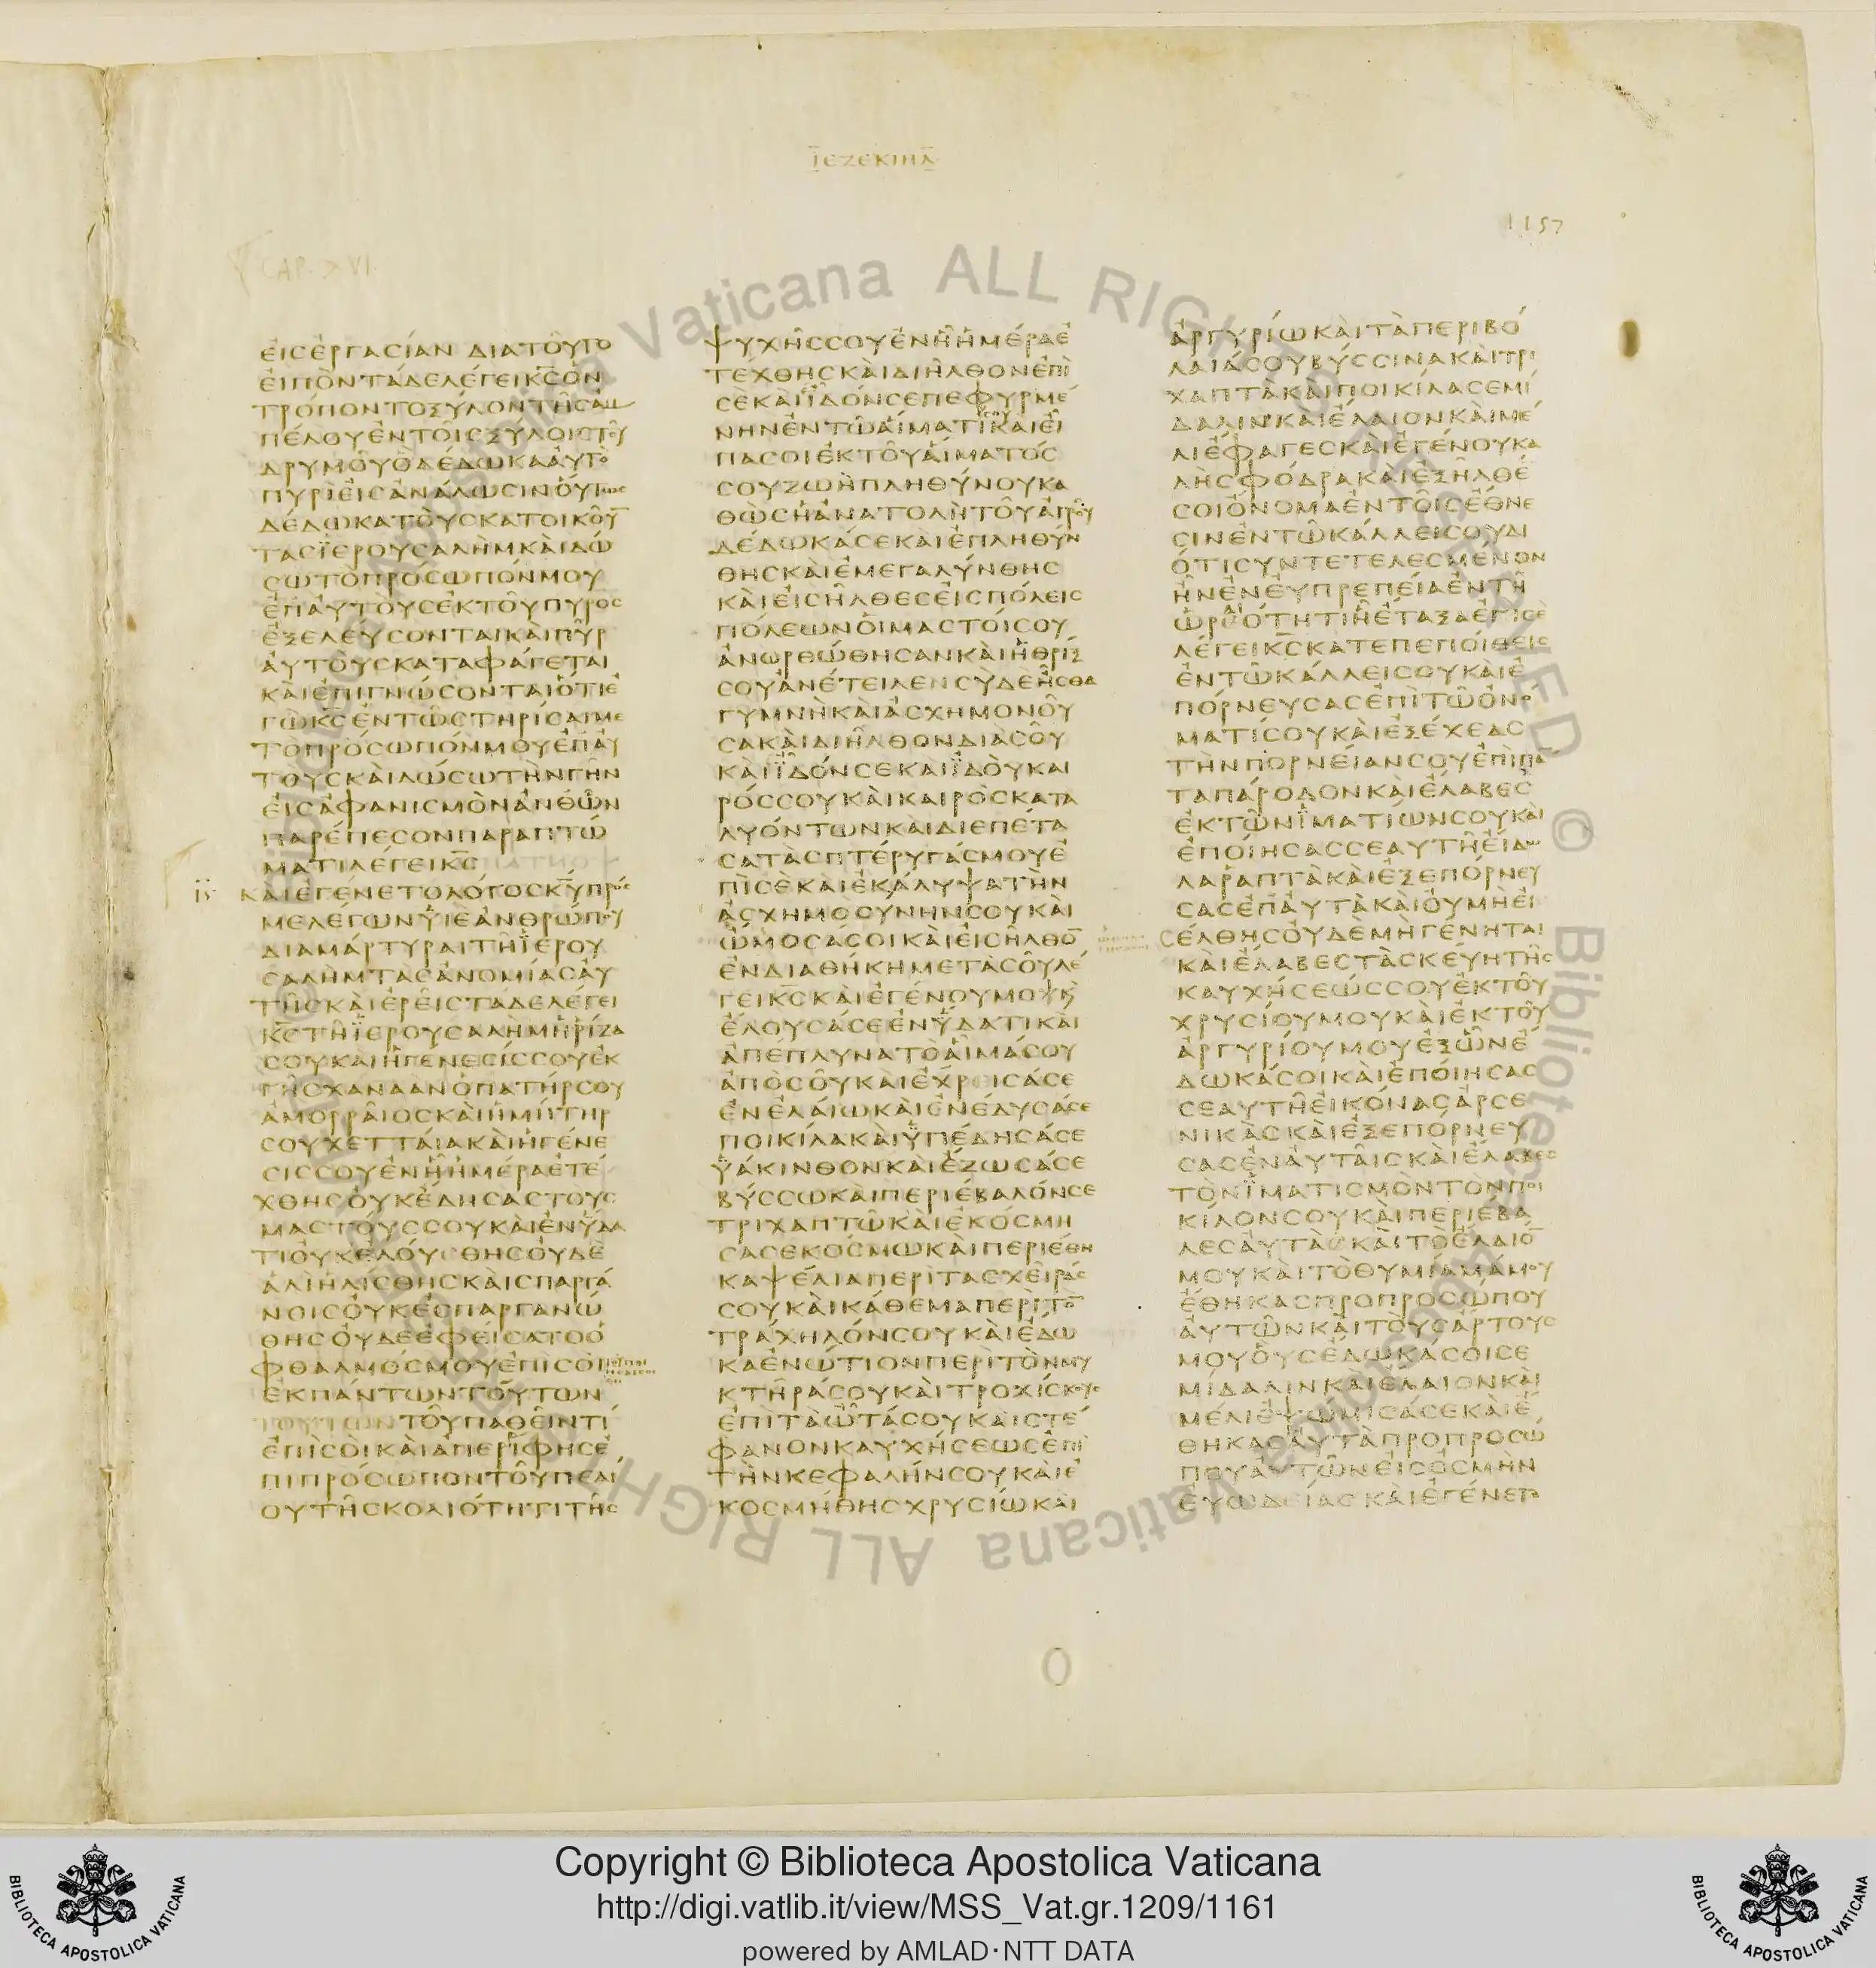 ΙΕΖΕΚΙΗΛ
1157
CAP. XVI
ΕΙΣΕΡΓΑΣΙΑΝ ΔΙΑΤΟΥΤΟ
ΕΙΠΟΝΤΑΔΕΛΕΓΕΙΚΣΟΝ
ΤΡΟΠΟΝΤΟΞΥΛΟΝΤΗΣΑΜ
ΠΕΛΟΥΕΝΤΟΙΣΞΥΛΟΙΣΤΟΥ
ΔΡΥΜΟΥΟΔΕΔΩΚΑΑΥΤΟ
ΠΥΡΙΕΙΣΑΝΑΛΩΣΙΝΟΥΤΩΣ
ΔΕΔΩΚΑΤΟΥΣΚΑΤΟΙΚΟΥ
ΤΑΣΙΕΡΟΥΣΑΛΗΜΚΑΙΔΩ
ΣΩΤΟΠΡΟΣΩΠΟΝΜΟΥ
ΕΠΑΥΤΟΥΣΕΚΤΟΥΠΥΡΟΣ
ΕΞΕΛΕΥΣΟΝΤΑΙΚΑΙΠΥΡ
ΑΥΤΟΥΣΚΑΤΑΦΑΓΕΤΑΙ
ΚΑΙΕΠΙΓΝΩΣΟΝΤΑΙΟΤΙΕ
ΓΩΚΣΕΝΤΩΣΤΗΡΙΣΑΙΜΕ
ΤΟΠΡΟΣΩΠΟΝΜΟΥΕΠΑΥ
ΤΟΥΣΚΑΙΔΩΣΩΤΗΝΓΗΝ
ΕΙΣΑΦΑΝΙΣΜΟΝΑΝΘΩΝ
ΠΑΡΕΠΕΣΟΝΠΑΡΑΠΤΩ
ΜΑΤΙΛΕΓΕΙΚΣ
ΚΑΙΕΓΕΝΕΤΟΛΟΓΟΣΚΥΠΡΟΣ
ΜΕΛΕΓΩΝΥΙΕΑΝΘΡΩΠΟΥ
ΔΙΑΜΑΡΤΥΡΑΙΤΗΙΕΡΟΥ
ΣΑΛΗΜΤΑΣΑΝΟΜΙΑΣΑΥ
ΤΗΣΚΑΙΕΡΕΙΣΤΑΔΕΛΕΓΕΙ
ΚΣΤΗΙΕΡΟΥΣΑΛΗΜΗΡΙΖΑ
ΣΟΥΚΑΙΗΓΕΝΕΣΙΣΣΟΥΕΚ
ΓΗΣΧΑΝΑΑΝΟΠΑΤΗΡΣΟΥ
ΑΜΟΡΡΑΙΟΣΚΑΙΗΜΗΤΗΡ
ΣΟΥΧΕΤΤΑΙΑΚΑΙΗΓΕΝΕ
ΣΙΣΣΟΥΕΝΗΗΜΕΡΑΕΤΕ
ΧΘΗΣΟΥΚΕΔΗΣΑΣΤΟΥΣ
ΜΑΣΤΟΥΣΣΟΥΚΑΙΕΝΥΔΑ
ΤΙΟΥΚΕΛΟΥΣΘΗΣΟΥΔΕ
ΑΛΙΗΛΙΣΘΗΣΚΑΙΣΠΑΡΓΑ
ΝΟΙΣΟΥΚΕΣΠΑΡΓΑΝΩ
ΘΗΣΟΥΔΕΕΦΕΙΣΑΤΟΟ
ΦΘΑΛΜΟΣΜΟΥΕΠΙΣΟΙ
ΕΚΠΑΝΤΩΝΤΟΥΤΩΝ
ΤΟΥΤΩΝΤΟΥΠΑΘΕΙΝΤΙ
ΕΠΙΣΟΙΚΑΙΑΠΕΡΙΦΗΣΕ
ΠΙΠΡΟΣΩΠΟΝΤΟΥΠΕΔΙ
ΟΥΤΗΣΚΟΛΙΟΤΗΤΙΤΗΣ
ΨΥΧΗΣΣΟΥΕΝΗΗΜΕΡΑΕ
ΤΕΧΘΗΣΚΑΙΔΙΗΛΘΟΝΕΠΙ
ΣΕΚΑΙΙΔΟΝΣΕΠΕΦΥΡΜΕ
ΝΗΝΕΝΤΩΑΙΜΑΤΙΚΑΙΕΙ
ΠΑΣΟΙΕΚΤΟΥΑΙΜΑΤΟΣ
ΣΟΥΖΩΗΠΛΗΘΥΝΟΥΚΑ
ΘΩΣΗΑΝΑΤΟΛΗΤΟΥΑΓΡΟΥ
ΔΕΔΩΚΑΣΕΚΑΙΕΠΛΗΘΥΝ
ΘΗΣΚΑΙΕΜΕΓΑΛΥΝΘΗΣ
ΚΑΙΕΙΣΗΛΘΕΣΕΙΣΠΟΛΕΙΣ
ΠΟΛΕΩΝΟΙΜΑΣΤΟΙΣΟΥ
ΑΝΩΡΘΩΘΗΣΑΝΚΑΙΗΘΡΙΞ
ΣΟΥΑΝΕΤΕΙΛΕΝΣΥΔΕΗΣΘΑ
ΓΥΜΝΗΚΑΙΑΣΧΗΜΟΝΟΥ
ΣΑΚΑΙΔΙΗΛΘΟΝΔΙΑΣΟΥ
ΚΑΙΙΔΟΝΣΕΚΑΙΙΔΟΥΚΑΙ
ΡΟΣΣΟΥΚΑΙΚΑΙΡΟΣΚΑΤΑ
ΛΥΟΝΤΩΝΚΑΙΔΙΕΠΕΤΑ
ΣΑΤΑΣΠΤΕΡΥΓΑΣΜΟΥΕ
ΠΙΣΕΚΑΙΕΚΑΛΥΨΑΤΗΝ
ΑΣΧΗΜΟΣΥΝΗΝΣΟΥΚΑΙ
ΩΜΟΣΑΣΟΙΚΑΙΕΙΣΗΛΘΟ
ΕΝΔΙΑΘΗΚΗΜΕΤΑΣΟΥΛΕ
ΓΕΙΚΣΚΑΙΕΓΕΝΟΥΜΟΙΚΑΙ
ΕΛΟΥΣΑΣΕΕΝΥΔΑΤΙΚΑΙ
ΑΠΕΠΛΥΝΑΤΟΑΙΜΑΣΟΥ
ΑΠΟΣΟΥΚΑΙΕΧΡΕΙΣΑΣΕ
ΕΝΕΛΑΙΩΚΑΙΕΝΕΔΥΣΑΣΕ
ΠΟΙΚΙΛΑΚΑΙΥΠΕΔΗΣΑΣΕ
ΥΑΚΙΝΘΟΝΚΑΙΕΖΩΣΑΣΕ
ΒΥΣΣΩΚΑΙΠΕΡΙΕΒΑΛΟΝΣΕ
ΤΡΙΧΑΠΤΩΚΑΙΕΚΟΣΜΗ
ΣΑΣΕΚΟΣΜΩΚΑΙΠΕΡΙΕΘΗ
ΚΑΨΕΛΙΑΠΕΡΙΤΑΣΧΕΙΡΑΣ
ΣΟΥΚΑΙΚΑΘΕΜΑΠΕΡΙΤΟ
ΤΡΑΧΗΛΟΝΣΟΥΚΑΙΕΔΩ
ΚΑΕΝΩΤΙΟΝΠΕΡΙΤΟΝΜΥ
ΚΤΗΡΑΣΟΥΚΑΙΤΡΟΧΙΣΚΟΥΣ
ΕΠΙΤΑΩΤΑΣΟΥΚΑΙΣΤΕ
ΦΑΝΟΝΚΑΥΧΗΣΕΩΣΕΠΙ
ΤΗΝΚΕΦΑΛΗΝΣΟΥΚΑΙΕ
ΚΟΣΜΗΘΗΣΧΡΥΣΙΩΚΑΙ
ΑΡΓΥΡΙΩΚΑΙΤΑΠΕΡΙΒΟ
ΛΑΙΑΣΟΥΒΥΣΣΙΝΑΚΑΙΤΡΙ
ΧΑΠΤΑΚΑΙΠΟΙΚΙΛΑΣΕΜΙ
ΔΑΛΙΝΚΑΙΕΛΑΙΟΝΚΑΙΜΕ
ΛΙΕΦΑΓΕΣΚΑΙΕΓΕΝΟΥΚΑ
ΛΗΣΦΟΔΡΑΚΑΙΕΞΗΛΘΕ
ΣΟΙΟΝΟΜΑΕΝΤΟΙΣΕΘΝΕ
ΣΙΝΕΝΤΩΚΑΛΛΕΙΣΟΥΔΙ
ΟΤΙΣΥΝΤΕΤΕΛΕΣΜΕΝΟΝ
ΗΝΕΝΕΥΠΡΕΠΕΙΑΕΝΤΗ
ΩΡΑΙΟΤΗΤΙΗΕΤΑΞΑΕΠΙΣΕ
ΛΕΓΕΙΚΣΚΑΤΕΠΕΠΟΙΘΕΙΣ
ΕΝΤΩΚΑΛΛΕΙΣΟΥΚΑΙΕ
ΠΟΡΝΕΥΣΑΣΕΠΙΤΩΟΝΟ
ΜΑΤΙΣΟΥΚΑΙΕΞΕΧΕΑΣ
ΤΗΝΠΟΡΝΕΙΑΝΣΟΥΕΠΙΠΑ
ΤΑΠΑΡΟΔΟΝΚΑΙΕΛΑΒΕΣ
ΕΚΤΩΝΙΜΑΤΙΩΝΣΟΥΚΑΙ
ΕΠΟΙΗΣΑΣΣΕΑΥΤΗΕΙΔΩ
ΛΑΡΑΠΤΑΚΑΙΕΞΕΠΟΡΝΕΥ
ΣΑΣΕΠΑΥΤΑΚΑΙΟΥΜΗΕΙ
ΣΕΛΘΗΣΟΥΔΕΜΗΓΕΝΗΤΑΙ
ΚΑΙΕΛΑΒΕΣΤΑΣΚΕΥΗΤΗΣ
ΚΑΥΧΗΣΕΩΣΣΟΥΕΚΤΟΥ
ΧΡΥΣΙΟΥΜΟΥΚΑΙΕΚΤΟΥ
ΑΡΓΥΡΙΟΥΜΟΥΕΞΩΝΕ
ΔΩΚΑΣΟΙΚΑΙΕΠΟΙΗΣΑΣ
ΣΕΑΥΤΗΕΙΚΟΝΑΣΑΡΣΕ
ΝΙΚΑΣΚΑΙΕΞΕΠΟΡΝΕΥ
ΣΑΣΕΝΑΥΤΑΙΣΚΑΙΕΛΑΒΕΣ
ΤΟΝΙΜΑΤΙΣΜΟΝΤΟΝΠΟΙ
ΚΙΛΟΝΣΟΥΚΑΙΠΕΡΙΕΒΑ
ΛΕΣΑΥΤΑΣΚΑΙΤΟΕΛΑΙΟ
ΜΟΥΚΑΙΤΟΘΥΜΙΑΜΑΜΟΥ
ΕΘΗΚΑΣΠΡΟΠΡΟΣΩΠΟΥ
ΑΥΤΩΝΚΑΙΤΟΥΣΑΡΤΟΥΣ
ΜΟΥΟΥΣΕΔΩΚΑΣΟΙΣΕ
ΜΙΔΑΛΙΝΚΑΙΕΛΑΙΟΝΚΑΙ
ΜΕΛΙΕΨΩΜΙΣΑΣΕΚΑΙΕ
ΘΗΚΑΣΑΥΤΑΠΡΟΠΡΟΣΩ
ΠΟΥΑΥΤΩΝΕΙΣΟΣΜΗΝ
ΕΥΩΔΕΙΑΣΚΑΙΕΓΕΝΕΤΟ
Vaticana ALL RIGHTS RESERVED © Biblioteca Apostolica Vaticana ALL RIGHTS
Copyright © Biblioteca Apostolica Vaticana
http://digi.vatlib.it/view/MSS_Vat.gr.1209/1161
powered by AMLAD·NTT DATA
BIBLIOTECA APOSTOLICA VATICANA
BIBLIOTECA APOSTOLICA VATICANA